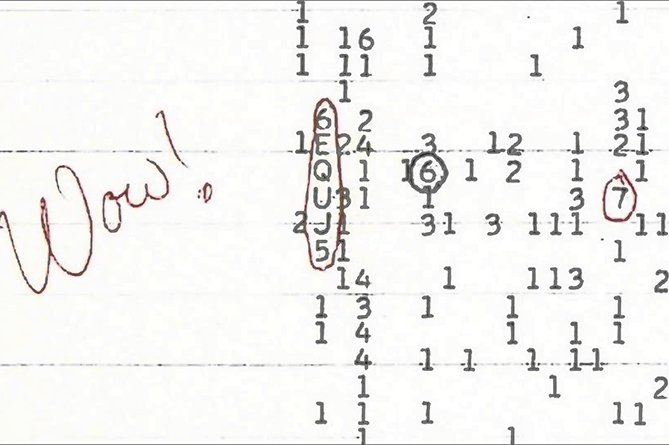 1 2 1
1 16 1 1
1 11 1 1
1 3
6 2 31
1E24 3 12 1 21
Q 1 16 1 2 1 1
U31 1 3 7
Wow!
2J1 31 3 111 11
51 1
14 1 113 2
1 3 1 1 1
1 4 1 1 1
4 1 1 1 11
1 1 2
1 1 1 11
1 1